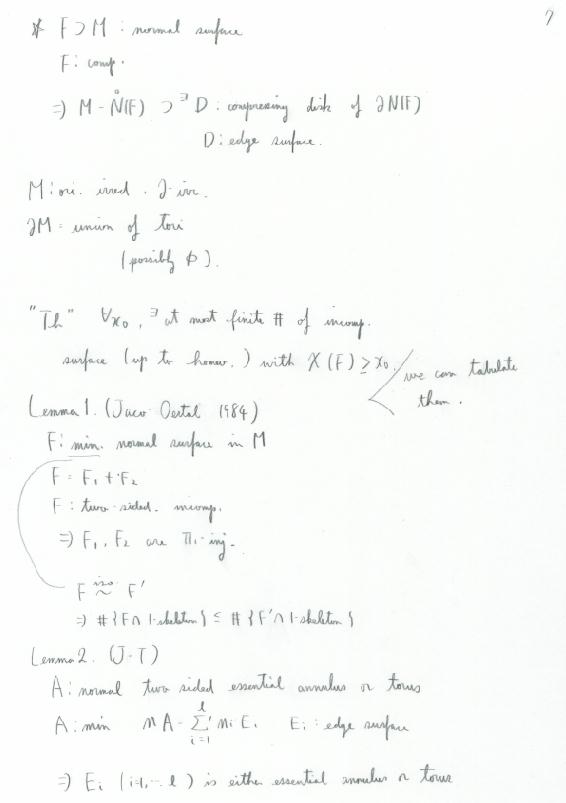 7
* F ⊃ M : normal surface
F : comp.
⇒ M - N̊(F) ⊃ ∃D : compressing disk of ∂N(F)
D : edge surface.
M : ori. irred. ∂-irr.
∂M = union of tori
(possibly φ).
"Th" ∀χ₀, ∃ at most finite # of incomp.
surface (up to homeo.) with χ(F) ≥ χ₀.
we can tabulate
them.
Lemma 1. (Jaco Oertal 1984)
F : min. normal surface in M
F = F₁ + F₂
F : two-sided. incomp.
⇒ F₁, F₂ are π₁-inj.
F iso ~ F'
⇒ #{F∩1-skeleton} ≤ #{F'∩1-skeleton}
Lemma 2. (J-T)
A : normal two sided essential annulus or torus
A : min nA = Σ_{i=1}^{l} n_i E_i E_i : edge surface
⇒ E_i (i=1,... l) is either essential annulus or torus